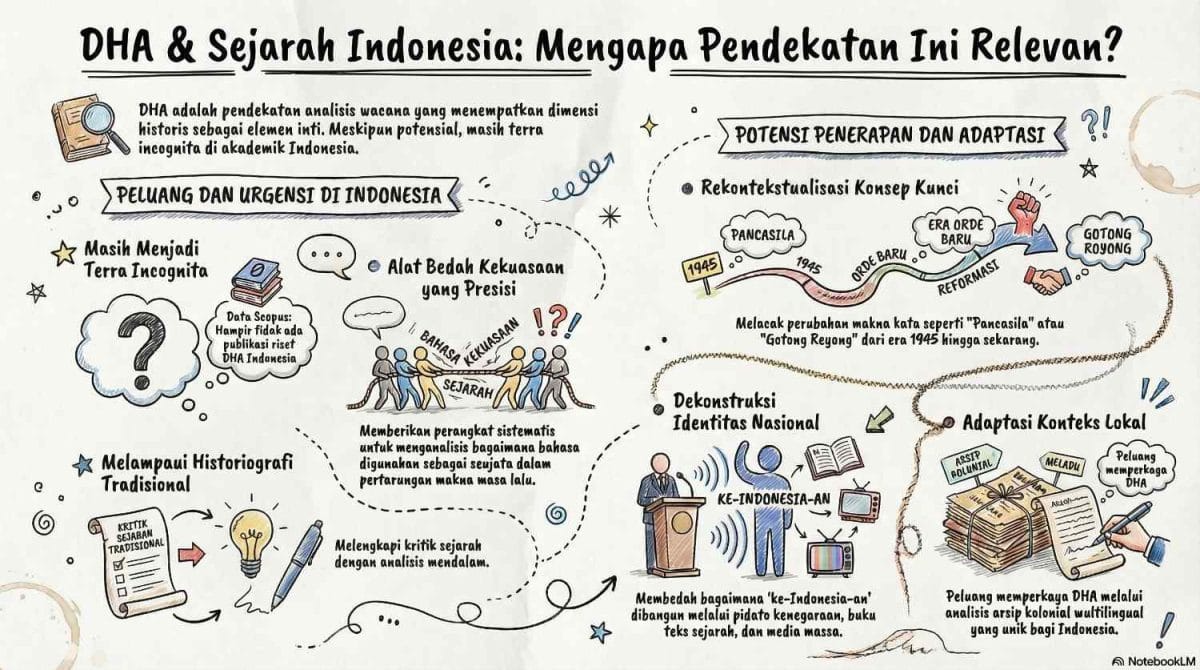 DHA & Sejarah Indonesia: Mengapa Pendekatan Ini Relevan?
DHA adalah pendekatan analisis wacana yang menempatkan dimensi
historis sebagai elemen inti. Meskipun potensial, masih terra
incognita di akademik Indonesia.
PELUANG DAN URGENSI DI INDONESIA
Masih Menjadi
Terra Incognita
?
0
Data Scopus:
Hampir fidak ada
publikasi riset
DHA Indonesia
Alat Bedah Kekuasaan
yang Presisi
!?!
BAHASA
KEKUASAAN
SEJARAH
Memberikan perangkat sistematis
untuk menganalisis bagaimana bahasa
digunakan sebagai seujata dalam
pertarungan makna masa lalu.
Melampaui Historiografi
Tradisional
KRITIK
SEJABAN
TRADISIONAL
Melengkapi kritik sejarah
dengan analisis mendalam.
POTENSI PENERAPAN DAN ADAPTASI
?!
Rekontekstualisasi Konsep Kunci
1945
PANCASILA
1945
ORDE BARU
ERA ORDE
BARU
REFORMASI
GOTONG
ROYONG
Melacak perubahan makna kata seperti "Pancasila" atau
"Gotong Reyong" dari era 1945 hingga sekarang.
Dekonstruksi
Identitas Nasional
KE-INDONESIA-AN
Membedah bagaimana 'ke-Indonesia-an'
dibangun melalui pidato kenegaraan, buku
teks sejarah, dan media massa.
Adaptasi Konteks Lokal
ARSIP
BOLUNIAL
MELADU
Peluang
memperkaga
DHA
Peluang memperkaya DHA melalui
analisis arsip kolonial wultilingual
yang unik bagi Indonesia.
NotebookLM